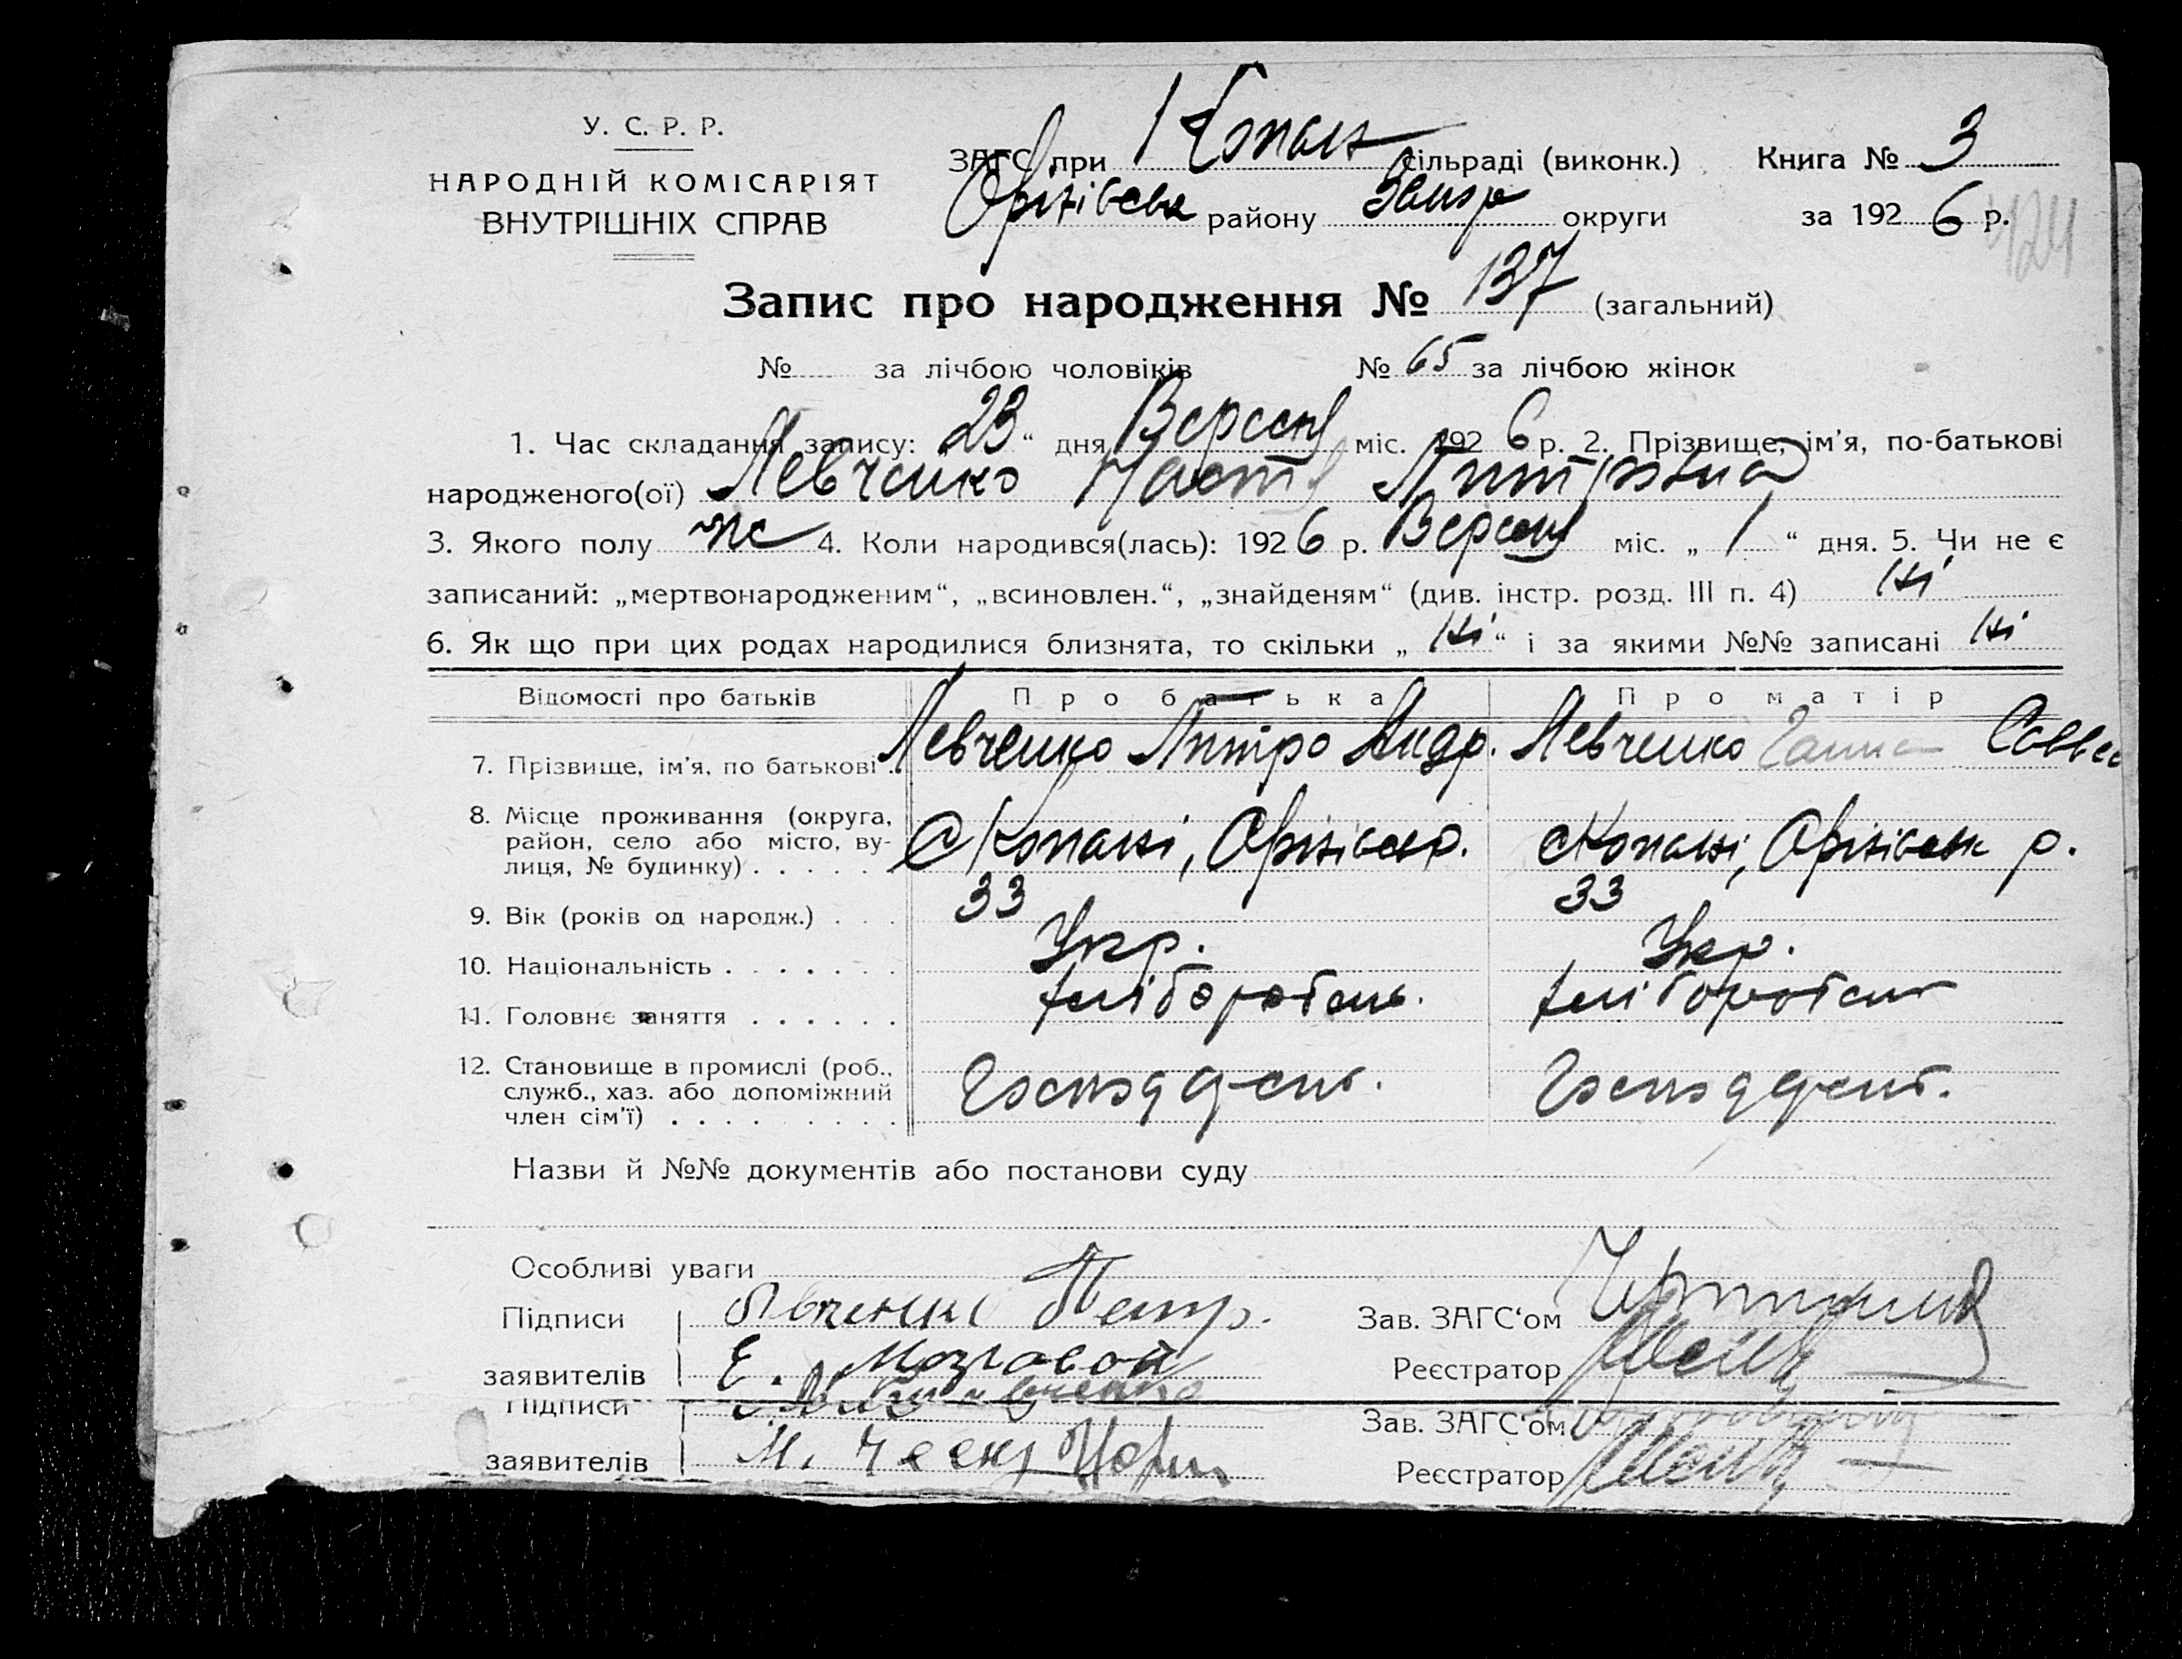 У. С. Р. Р.
НАРОДНІЙ КОМІСАРІЯТ
ВНУТРІШНІХ СПРАВ
ЗАГС при Копан сільраді (виконк.) Книга № 3
Оріхівськ району Запор округи за 1926 р.
424
Запис про народження № 137 (загальний)
№ за лічбою чоловіків № 65 за лічбою жінок
1. Час складання запису: „23“ дня Вересня міс. 1926 р. 2. Прізвище, ім'я, по-батькові
народженого(ої) Левченко Настя Дмитровна
3. Якого полу ж 4. Коли народився(лась): 1926 р. Вересня міс. „1“ дня. 5. Чи не є
записаний: „мертвонародженим“, „всиновлен.“, „знайденям“ (див. інстр. розд. III п. 4) Ні
6. Як що при цих родах народилися близнята, то скільки „Ні“ і за якими №№ записані Ні
Відомості про батьків Про батька Про матір
7. Прізвище, ім'я, по батькові . Левченко Дмитро Андр. Левченко Ганна Савве
8. Місце проживання (округа,
район, село або місто, ву-
лиця, № будинку) . . . . . . С Копані, Оріхівсь р. С Копані, Оріхівськ р.
9. Вік (років од народж.) . . 33 33
10. Національність . . . . . . . Укр. Укр.
11. Головне заняття . . . . . . Хлібороб Хлібороб
12. Становище в промислі (роб.,
служб., хаз. або допоміжний
член сім'ї) . . . . . . . . .
Назви й №№ документів або постанови суду
Особливі уваги
Підписи Петр Зав. ЗАГС'ом
заявителів Е. Мозговой Реєстратор
Підписи Зав. ЗАГС'ом
заявителів М. Реєстратор